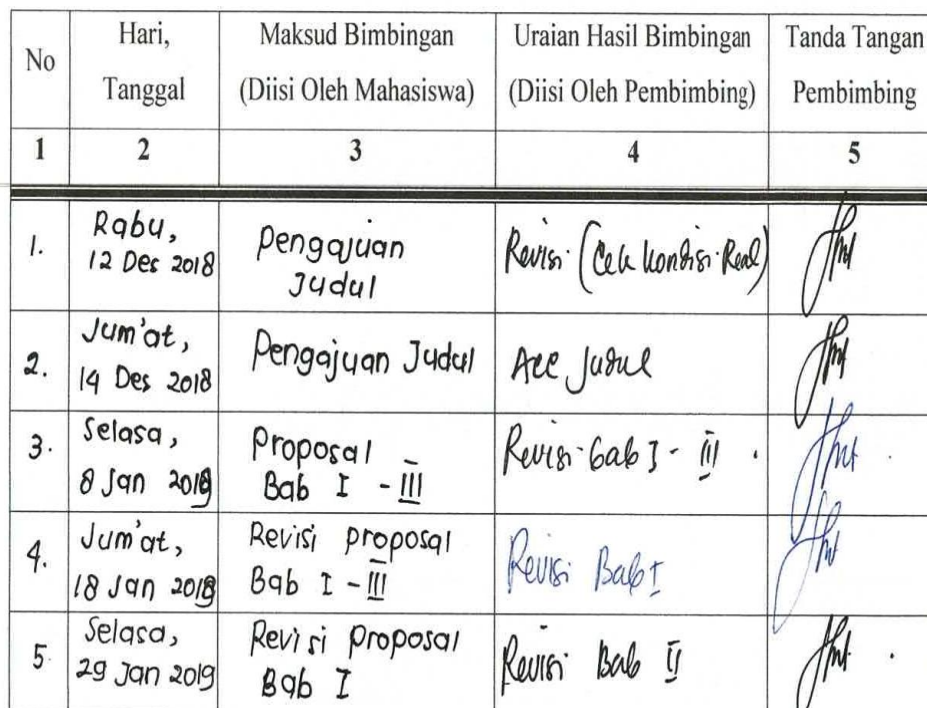 No
Hari,
Tanggal
Maksud Bimbingan
(Diisi Oleh Mahasiswa)
Uraian Hasil Bimbingan
(Diisi Oleh Pembimbing)
Tanda Tangan
Pembimbing
1 2 3 4 5
1.
Rabu,
12 Des 2018
Pengajuan
Judul
Revisi (Cek kondisi Real)
2.
Jum'at,
14 Des 2018
Pengajuan Judul
Acc Judul
3.
Selasa,
8 Jan 2019
Proposal
Bab I - III
Revisi bab I - III.
4.
Jum'at,
18 Jan 2019
Revisi proposal
Bab I - III
Revisi Bab I
5.
Selasa,
29 Jan 2019
Revisi Proposal
Bab I
Revisi Bab II